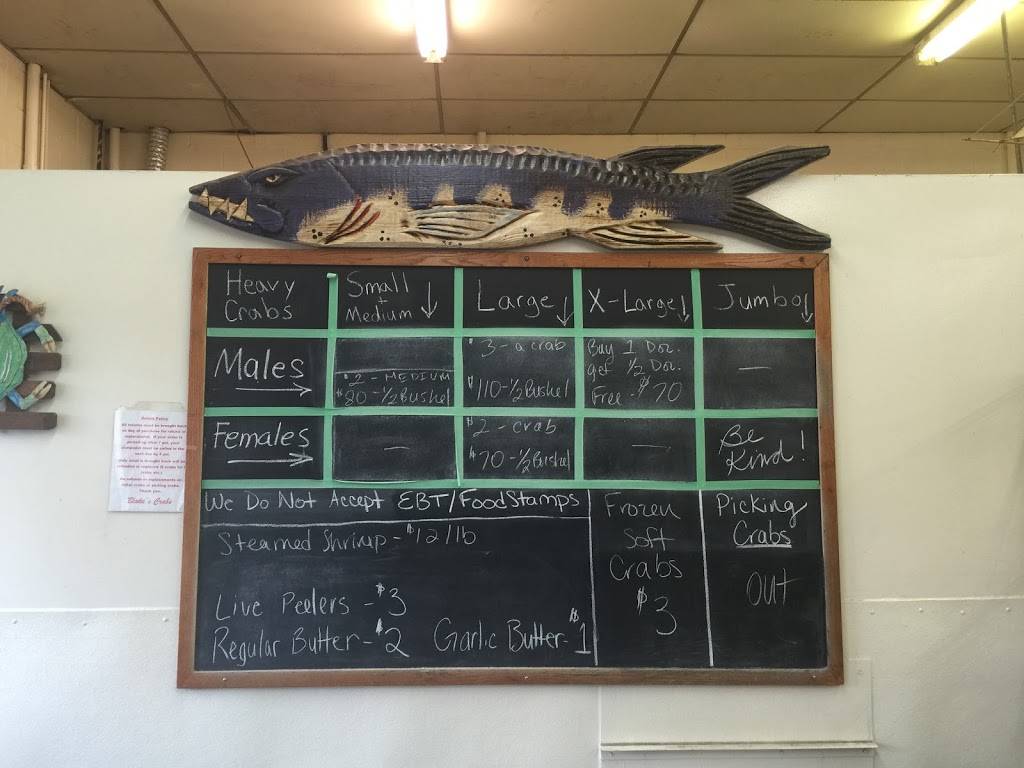 Heavy Crabs
Small + Medium ↓
Large ↓
X-Large ↓
Jumbo ↓
Males
$2 - MEDIUM
- 1/2 Bushel
$3 - a crab
$110 - 1/2 Bushel
Buy 1 Doz.
get 1/2 Doz.
Free - $70
—
Females
—
$2 - crab
$70 - 1/2 Bushel
—
Be Kind!
We Do Not Accept EBT/Food Stamps
Steamed Shrimp - $12/lb
Live Peelers - $3
Regular Butter - $2 Garlic Butter - $1
Frozen
Soft
Crabs
$3
Picking
Crabs
OUT
Return Policy
Thank you,
Blade's Crabs